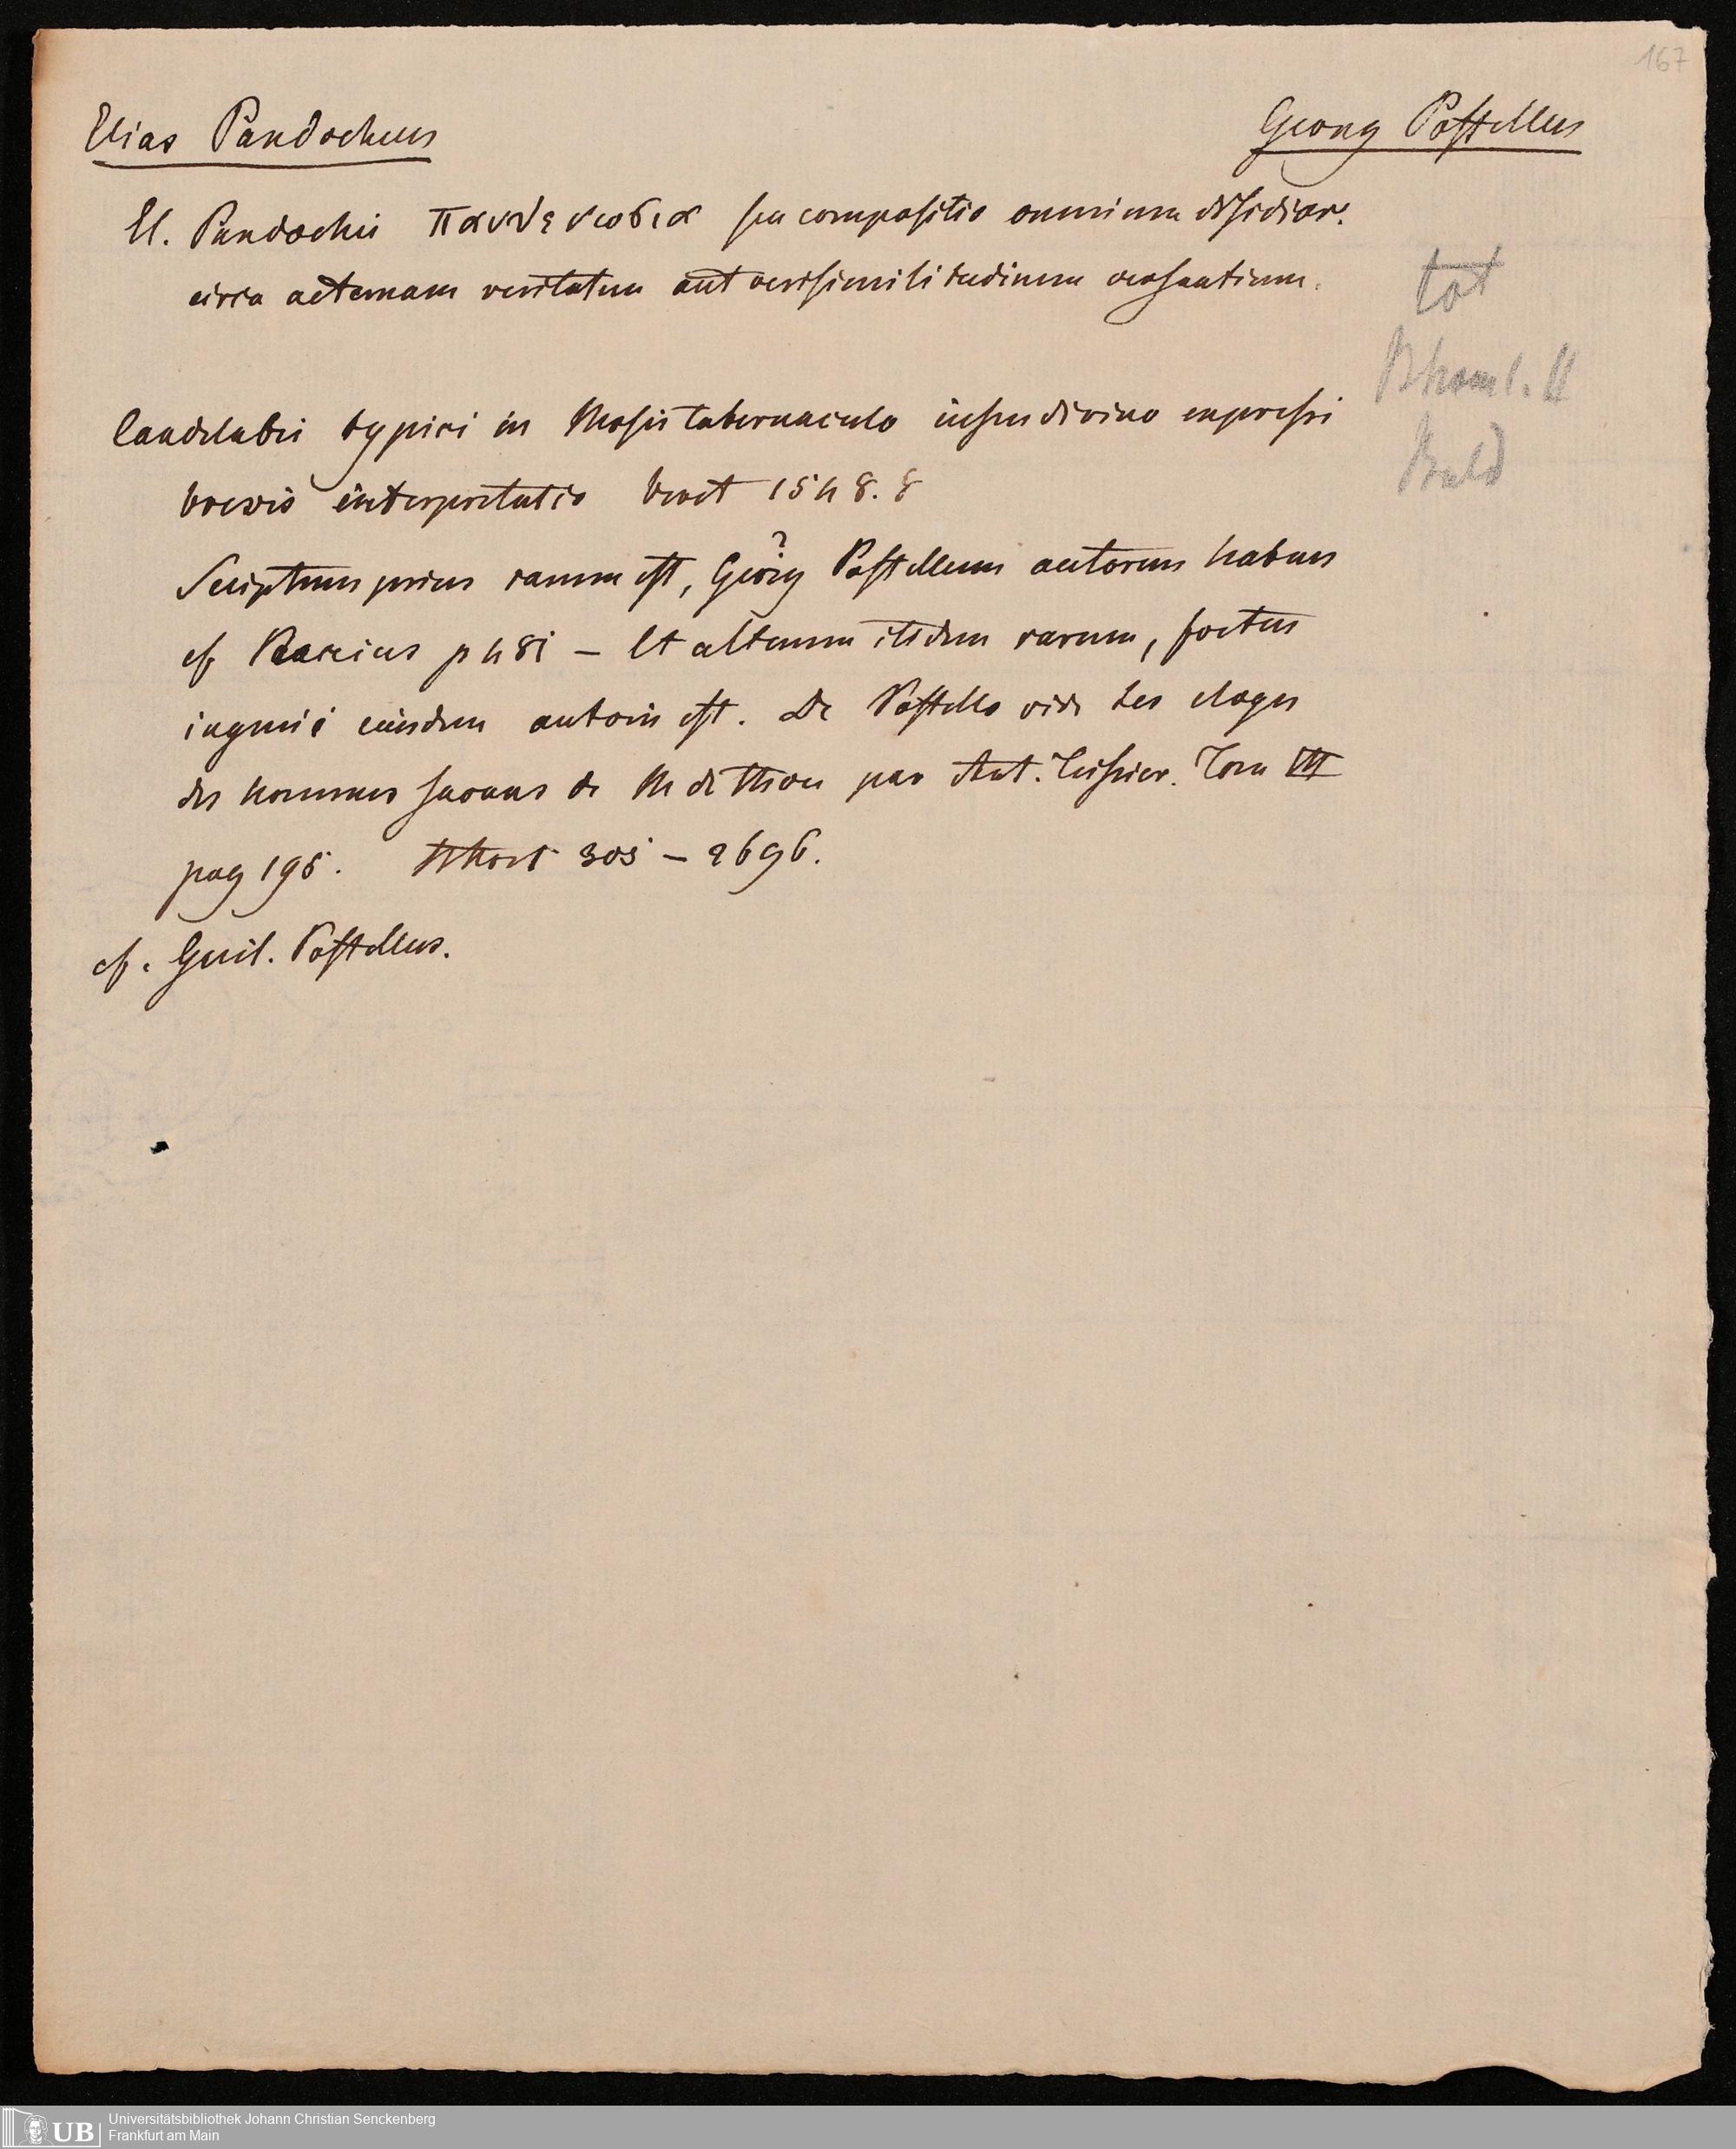 167
Elias Pandocheus
Georg Postellus
El. Pandochei πανθενωσια seu compositio omnium dissidior.
circa aeternam veritatem aut verisimilitudinem versantium.
tot
Candelabri typici in Mosis tabernaculo iussu divino expressi
brevis interpretatio Venet 1548. 8
Scriptum prius rarum est, Georg ? Postellum autorem habens
cf p 481 – Et alterum itidem rarum, foetus
ingenii eiusdem autoris est. De Postello vide Les eloges
des hommes savans de M de Thou par Ant. Teissier. Tom III
pag 195. 305 – 2696.
cf. Guil. Postellus.
UB Universitätsbibliothek Johann Christian Senckenberg
Frankfurt am Main